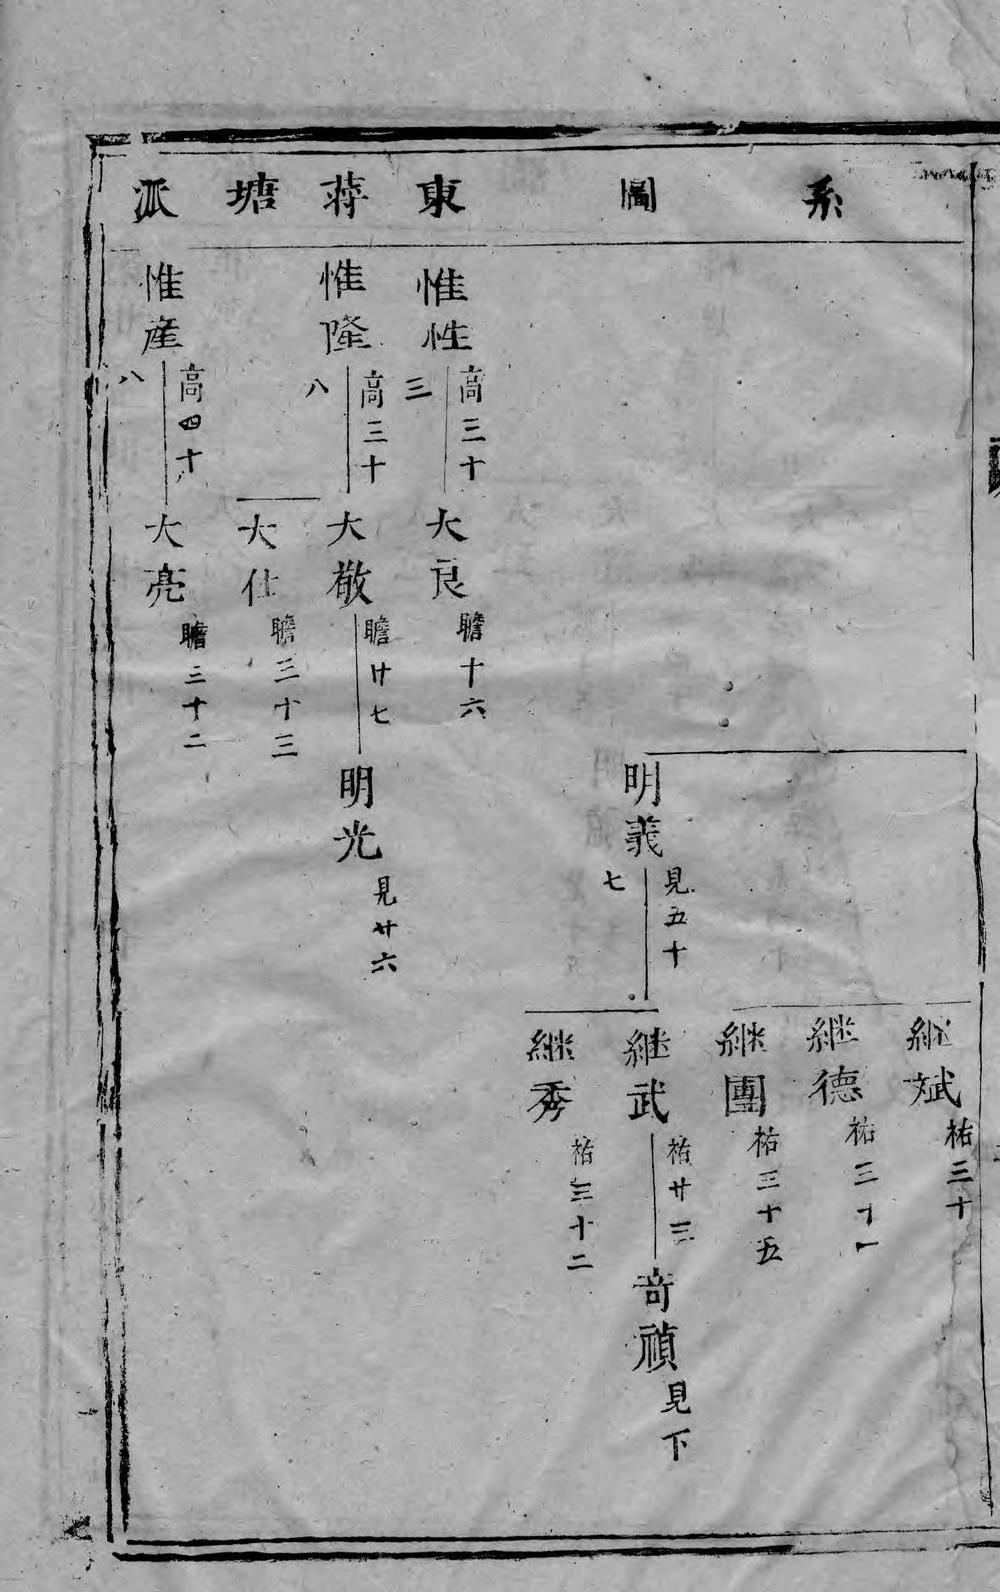 系圖
東蒋塘派
継斌 祐三十
継德 祐三十一
継團 祐三十五
明義 見五十七
継武 祐廿三
竒禎 見下
継秀 祐三十二
惟性 高三十三
大良 瞻十六
惟隆 高三十八
大敬 瞻廿七
明光 見廿六
大仕 瞻三十三
惟產 高四十八
大亮 瞻三十二